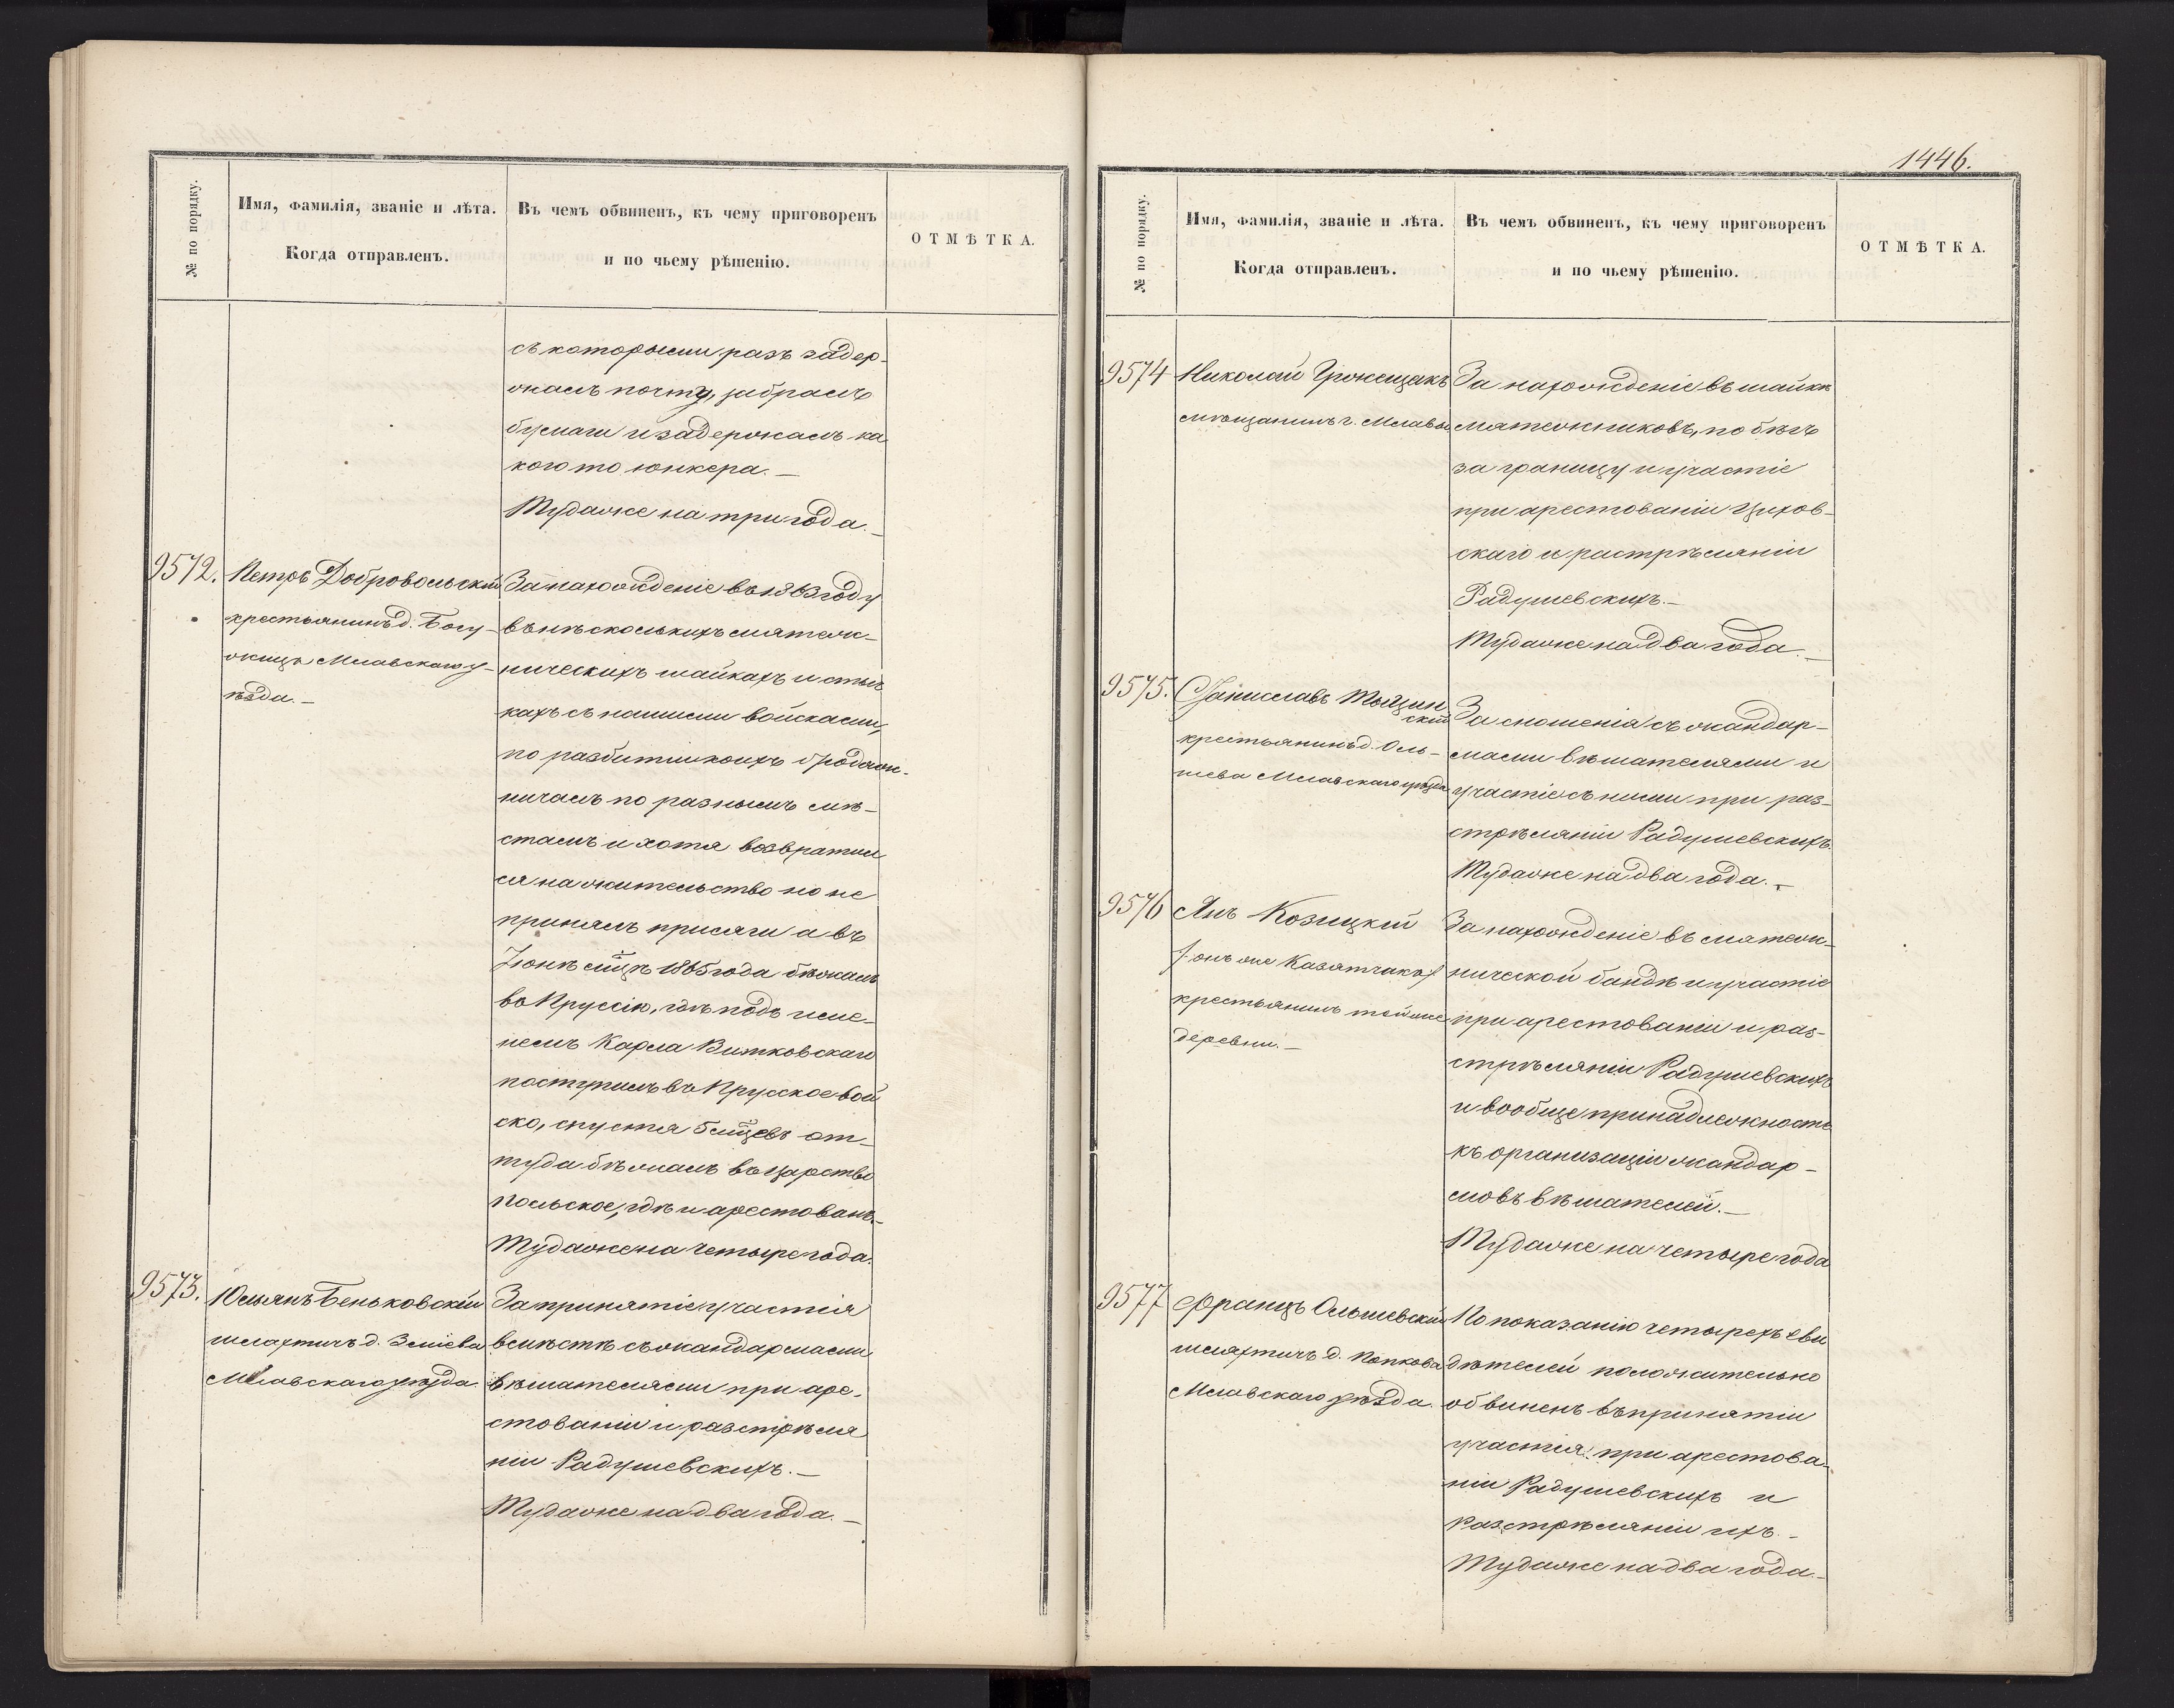 № по порядку.
Имя, фамилія, званіе и лѣта.
Когда отправленъ.
Въ чемъ обвиненъ, къ чему приговоренъ
и по чьему рѣшенію.
ОТМѢТКА.
съ которыми разъ задер-
жалъ почту, забралъ
бумаги и задержалъ ка
кого то юнкера.—
Тудаже на три года.—
9572. Петръ Добровольскій
крестьянинъ д. Богу-
жицъ Млавскаго у-
ѣзда.—
За нахожденіе въ 1863 году
въ нѣсколькихъ мятеж-
ническихъ шайкахъ и стыч
кахъ съ нашими войсками,
по разбитіи коихъ бродяж-
ничалъ по разнымъ мѣ-
стамъ и хотя возвратил
ся на жительство но не
принялъ присяги а въ
Іюнѣ мцѣ 1865 года бѣжалъ
въ Пруссію, гдѣ подъ име-
немъ Карла Витковскаго
поступилъ въ Прусское вой
ско, спустя 5 мцевъ от-
туда бѣжалъ въ Царство
Польское, гдѣ и арестованъ.—
Тудаже на четыре года.
9573. Юльянъ Беньковскій
шляхтичъ д. Змѣева
Млавскаго уѣзда.
За принятіе участія
вмѣстѣ съ жандармами
вѣшателями при аре-
стованіи и разстрѣля
ніи Радушевскихъ.—
Тудаже на два года.—
1446.
№ по порядку.
Имя, фамилія, званіе и лѣта.
Когда отправленъ.
Въ чемъ обвиненъ, къ чему приговоренъ
и по чьему рѣшенію.
ОТМѢТКА.
9574 Николай
мѣщанинъ г. Млавы
За нахожденіе въ шайкѣ
мятежниковъ, побѣгъ
за границу и участіе
при арестованіи Цихов-
скаго и растрѣляніи
Радушевскихъ.—
Тудаже на два года.—
9575. Станиславъ
крестьянинъ д. Оль-
шева Млавскаго уѣзда
За сношенія съ жандар-
мами вѣшателями и
участіе съ ними при раз-
стрѣляніи Радушевскихъ.
Тудаже на два года.—
9576 Янъ Козицкій
/онъ же Казятчакъ/
крестьянинъ той же
деревни.—
За нахожденіе въ мятеж-
нической бандѣ и участіе
при арестованіи и раз-
стрѣляніи Радушевскихъ
и вообще принадлежность
къ организаціи жандар-
мовъ вѣшателей.—
Тудаже на четыре года
9577 Францъ Ольшевскій
шляхтичъ д. Попкова
Млавскаго уѣзда.
По показанію четырехъ сви
дѣтелей положительно
обвиненъ въ принятіи
участія при арестова-
ніи Радушевскихъ и
разстрѣляніи ихъ.—
Тудаже на два года.—